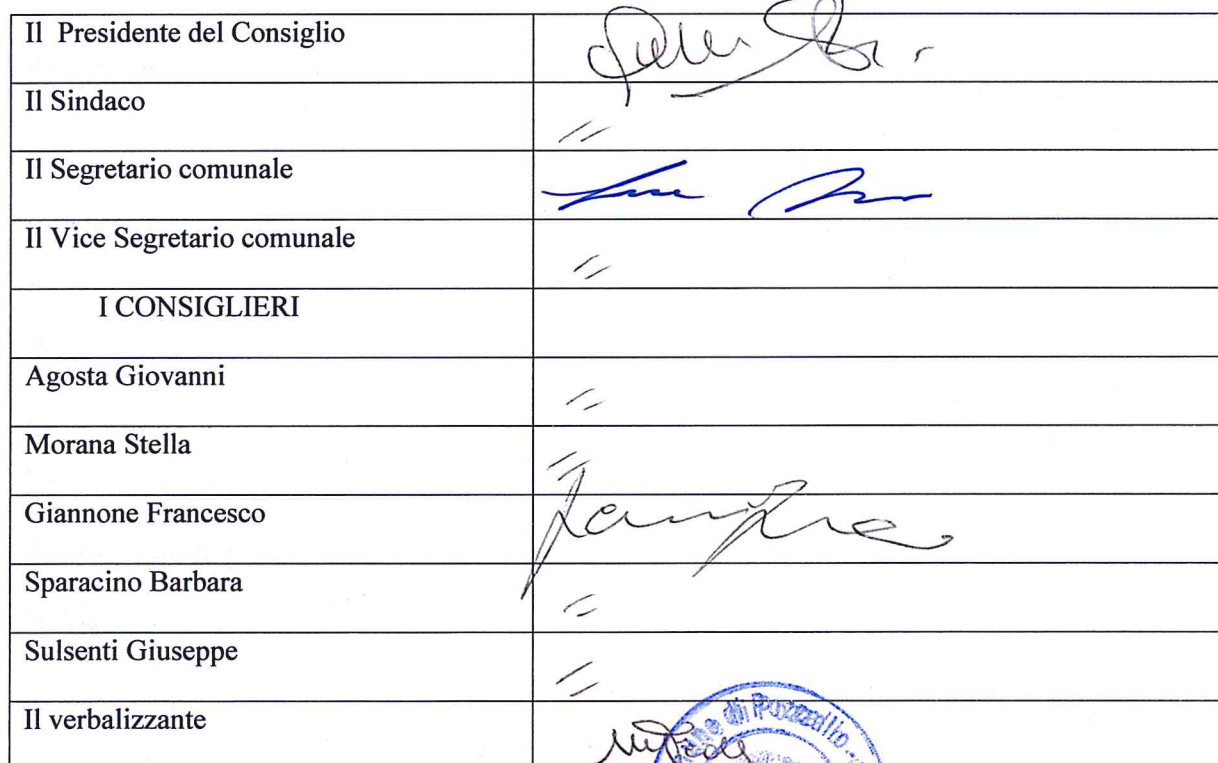 Il Presidente del Consiglio
Il Sindaco
//
Il Segretario comunale
Il Vice Segretario comunale
//
I CONSIGLIERI
Agosta Giovanni
//
Morana Stella
//
Giannone Francesco
Sparacino Barbara
//
Sulsenti Giuseppe
//
Il verbalizzante
di Pozzallo